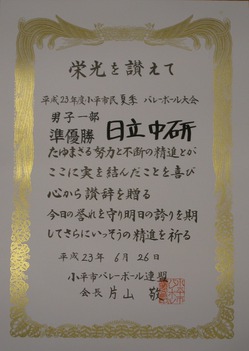 栄光を讃えて
平成23年度小平市民夏季 バレーボール大会
男子一部
準優勝 日立中研
たゆまざる努力と不断の精進とが
ここに実を結んだことを喜び
心から讃辞を贈る
今日の誉れを守り明日の誇りを期
してさらにいっそうの精進を祈る
平成23年 6月26日
小平市バレーボール連盟
会長 片山 敬